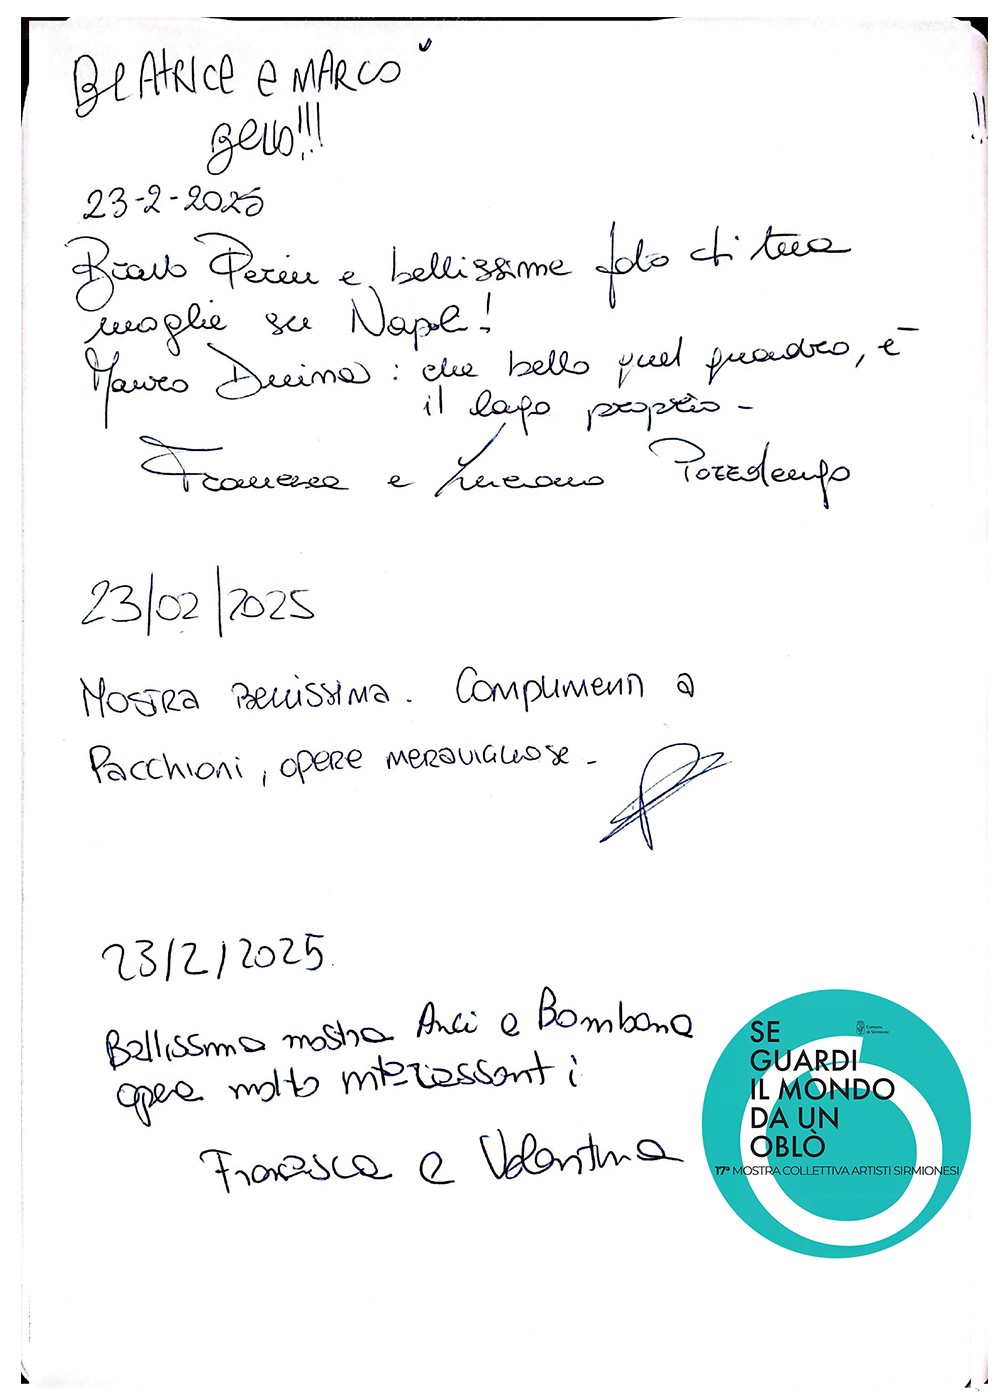 BEATRICE e MARCO
Bello!!!
!!
23-2-2025
Bravo Perin e bellissime foto di tua
moglie su Napoli!
Mauro Duina : che bello quel quadro, è
il lago proprio -
Francesca e Luciano Pozzolengo
23/02/2025
MOSTRA BELLISSIMA. COMPLIMENTI A
PACCHIONI, OPERE MERAVIGLIOSE -
23/2/2025.
Bellissima mostra Anci e Bombana
opere molto interessanti
Francesca e Valentina
SE
GUARDI
IL MONDO
DA UN
OBLÒ
Comune
di Sirmione
17ª MOSTRA COLLETTIVA ARTISTI SIRMIONESI